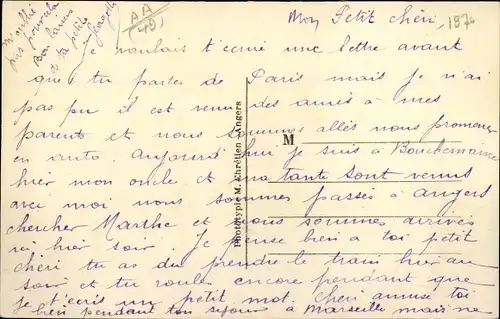 Mon Petit chéri,
Je voulais t'ecrire une lettre avant
que tu partes de Paris mais je n'ai
pas pu il est venu des amis à mes
parents et nous sommes allés nous promener
en auto. Aujourd'hui je suis à Bouchemaine
hier mon oncle et ma tante sont venus
avec moi nous sommes passés à Angers
chercher Marthe et nous sommes arrivés
ici hier soir. Je pense bien a toi petit
chéri tu as du prendre le train hier au
soir et tu roules encore pendant que
je t'ecris un petit mot. Chéri amuse toi
bien pendant ton sejour à Marseille mais ne
m'oublie
pas pourtant
Bon baisers
de ta petite
AA
49
197
M
Phototypie M. Chrétien Angers